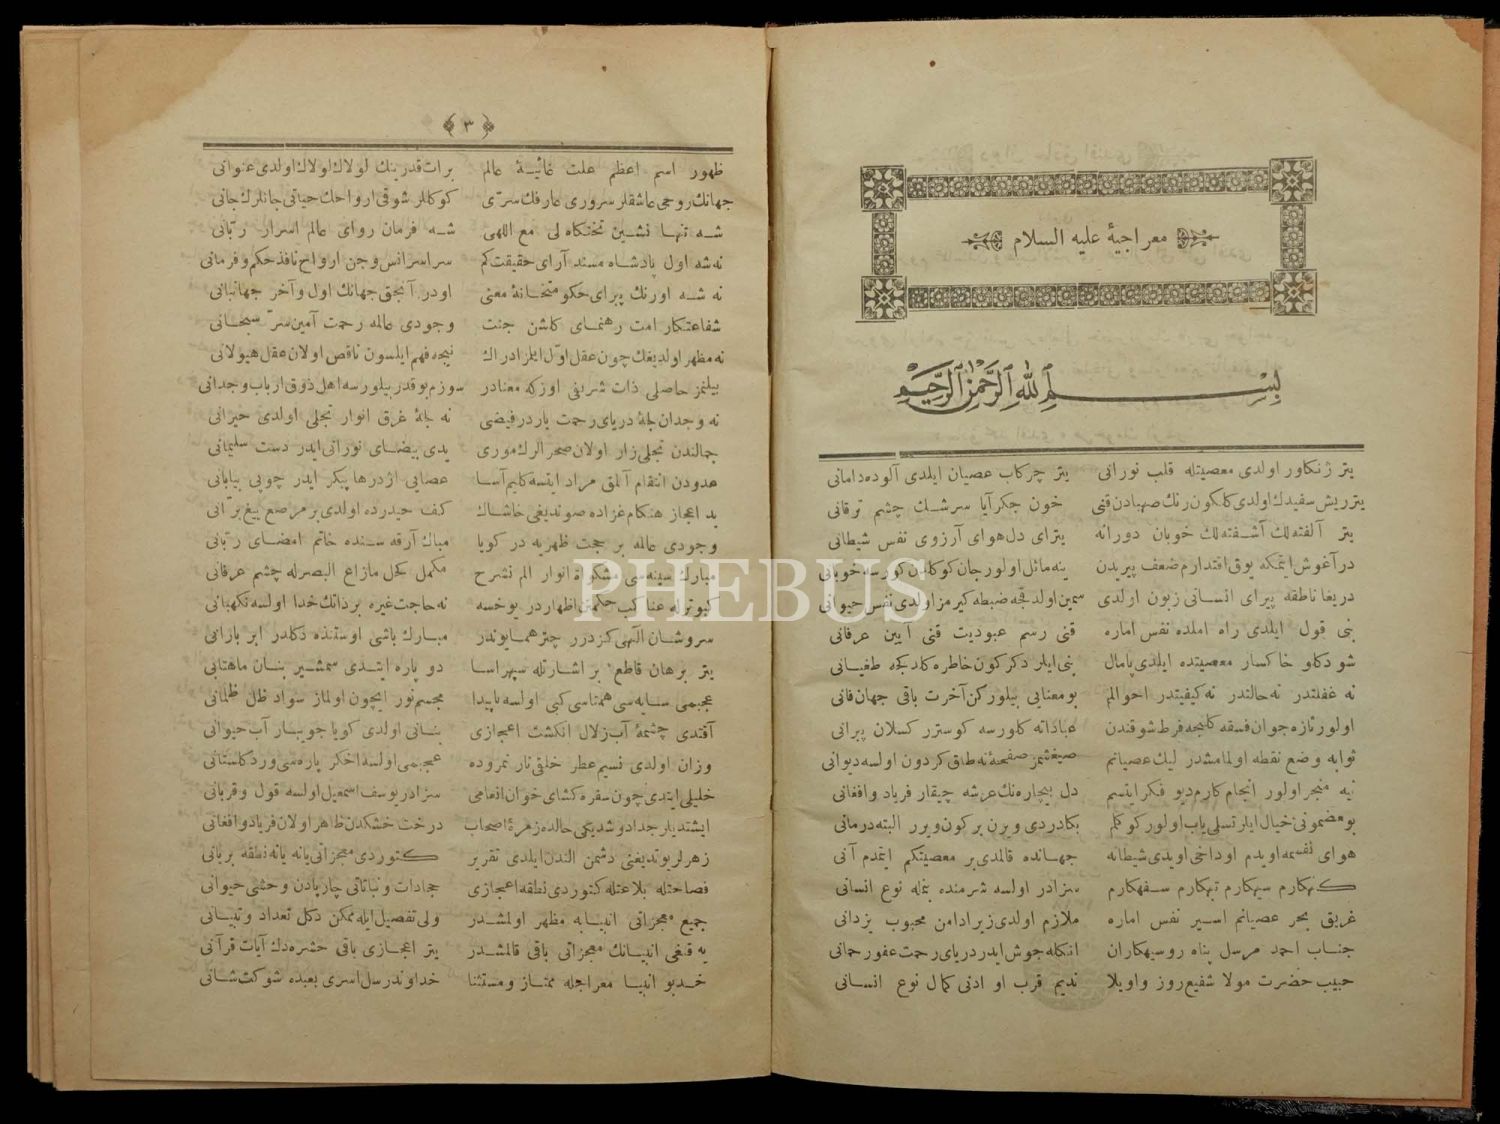 معراجیهٔ علیه السلام
بسم الله الرحمن الرحیم
یتر ژنکاور اولدی معصیتله قلب نورانی یتر چرکاب عصیان ایلدی آلوده دامانی
یتر ریش سفیدك اولدی کلکون رنك صهبادن قنی خون جکر آیا سرشك چشم ترقانی
یتر آلفته لك آشفته لك خوبان دورانه یتر ای دل هوای آرزوی نفس شیطانی
در آغوش ایتمکه یوق اقتدارم ضعف پیریدن ینه مائل اولور جان کوکللین کورسه خوبانی
دریغا ناطقه پیرای انسانی زبون اولدی سمین اولدقجه ضبطه کیرمز اولدی نفس حیوانی
بنی قول ایلدی راه املده نفس اماره قنی رسم عبودیت قنی آیین عرفانی
شو دکلو خاکسار معصیتده ایلدی پامال بنی ایلر دکرکون خاطره کلدکجه طغیانی
نه غفلتدر نه حالتدر نه کیفیتدر احوالم بو معنایی بیلورکن آخرت باقی جهان فانی
اولور تازه جوان فسقه کلنجه فرط شوقندن عباداته کلورسه کوسترر کسلان پیرانی
ثوابه وضع نقطه اولمامشدر لیك عصیانم صیغشمز صفحهٔ نه طاق کردون اولسه دیوانی
نیه منجر اولور انجام کارم دیو فکر ایتسم دل بیچاره نك عرشه چیقار فریاد وافغانی
بو مضمونی خیال ایلر تسلی یاب اولور کوکلم بکا دردی ویرن برکون ویرر البته درمانی
هوای نفسمه اویدم او داخی اویدی شیطانه جهانده قالمدی بر معصیتکم ایتمدم آنی
کنهکارم سیهکارم تبهکارم سفهکارم سزادر اولسه شرمنده بنمله نوع انسانی
غریق بحر عصیانم اسیر نفس اماره ملازم اولدی زیرا دامن محبوب یزدانی
جناب احمد مرسل پناه روسیهکاران انکله جوش ایدر دریای رحمت عفو رحمانی
حبیب حضرت مولا شفیع روز واویلا ندیم قرب او ادنی کمال نوع انسانی
۳
ظهور اسم اعظم علت غائیهٔ عالم برات قدرینك لولاك لولاك اولدی عنوانی
جهانك روحی عاشقلر سروری عارفك سرّی کوکللر شوقی ارواحك حیاتی جانلرك جانی
شه تنها نشین تختکاه لی مع اللهی شه فرمان روای عالم اسرار ربانی
نه شه اول پادشاه مسند آرای حقیقت کم سراسر انس وجن ارواح نافذ حکم وفرمانی
نه شه اورنك پیرای حکومتخانهٔ معنی اودر آنجق جهانك اول وآخر جهانبانی
شفاعتکار امت رهنمای کلشن جنت وجودی عالمه رحمت آمین سرّ سبحانی
نه مظهر اولدیغك چون عقل اوّل ایلمز ادراك نیجه فهم ایلسون ناقص اولان عقل هیولانی
بیلنمز حاصلی ذات شریفی اوزکه معنادر سوزم یوقدر بیلورسه اهل ذوق ارباب وجدانی
نه وجدان لجهٔ دریای رحمت یاردر فیضی نه لجهٔ غرق انوار تجلی اولدی حیرانی
جمالندن تجلی زار اولان صحرالرك موری یدی بیضای نورانی ایدر دست سلیمانی
عدودن انتقام آلمق مراد ایتسه کلیم آسا عصایی اژدرها پیکر ایدر چوپی بیابانی
ید اعجاز هنکام غزاده صوندیغی خاشاك کف حیدرده اولدی بر مرصع تیغ برّانی
وجودی عالمه بر حجت ظهریه در کویا مبارك آرقه سنده خاتم امضای ربانی
مبارك سینه سی مشکوة انوار الم نشرح مکمل کحل مازاغ البصرله چشم عرفانی
کبوترله عناکب حکمتن اظهاردر یوخسه نه حاجت غیره بر ذاتك خدا اولسه نکهبانی
سروشان الهی کزدرر چتر همایوندر مبارك باشی اوستنده دکلدر ابر بارانی
یتر برهان قاطع بر اشارتله سپهراسا دو پاره ایتدی سمشیر بنان ماهتابی
عجبمی سایه سی همتاسی کبی اولسه ناپیدا مجسم نور ایچون اولماز سواد ظل ظلمانی
آقتدی چشمهٔ آب زلال انکشت اعجازی بنانی اولدی کویا جویبار آب حیوانی
وزان اولدی نسیم عطر خلقی نار نمروده عجبمی اولسه اخکر پاره سی ورد کلستانی
خلیلی ایتدی چون سفره کشای خوان انعامی سزادر یوسف اسمعیل اولسه قول وقربانی
ایشتدیلر جدا دوشدیکی حالده زمرهٔ اصحاب درخت خشکدن ظاهر اولان فریاد وافغانی
زهرلریوندیغنی دشمن الندن ایلدی تقریر کتوردی معجزاتی یانه یانه نطقه بریانی
فصاحتله بلاغتله کتوردی نطقه اعجازی جمادات ونباتاتی چارپادن وحشی حیوانی
جمیع معجزاتی انبیایه مظهر اولمشدر ولی تفصیل ایله ممکن دکل تعداد وتبیانی
یه قنغی انبیانك معجزاتی باقی قالمشدر یتر اعجازی باقی حشره دك آیات قرآنی
خدیو انبیا معراجله ممتاز ومستثنا خداوند رسل اسری بعبده شوکت شانی